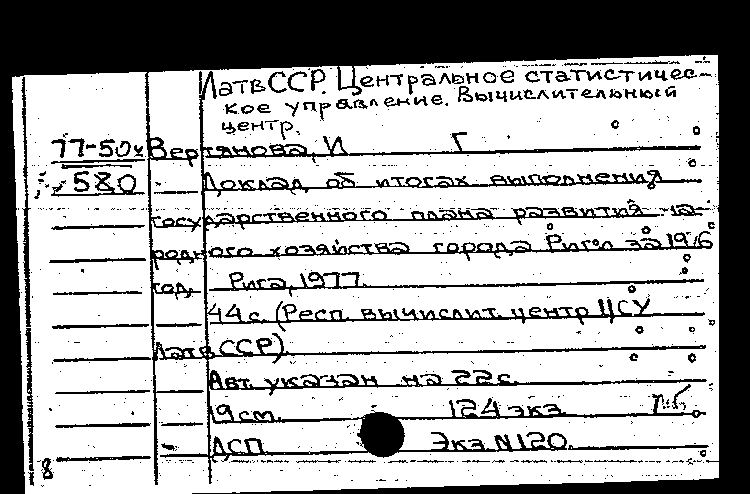 ЛатвССР. Центральное статистичес-
кое управление. Вычислительный
центр.
77-50к Вертянова, И Г
580 Доклад об итогах выполнения
государственного плана развития на-
родного хозяйства города Риги за 1976
год. Рига, 1977.
44 с. (Респ. вычислит. центр ЦСУ
ЛатвССР).
Авт. указан на 22 с.
19 см. 124 экз.
ДСП Экз. N 120.
8